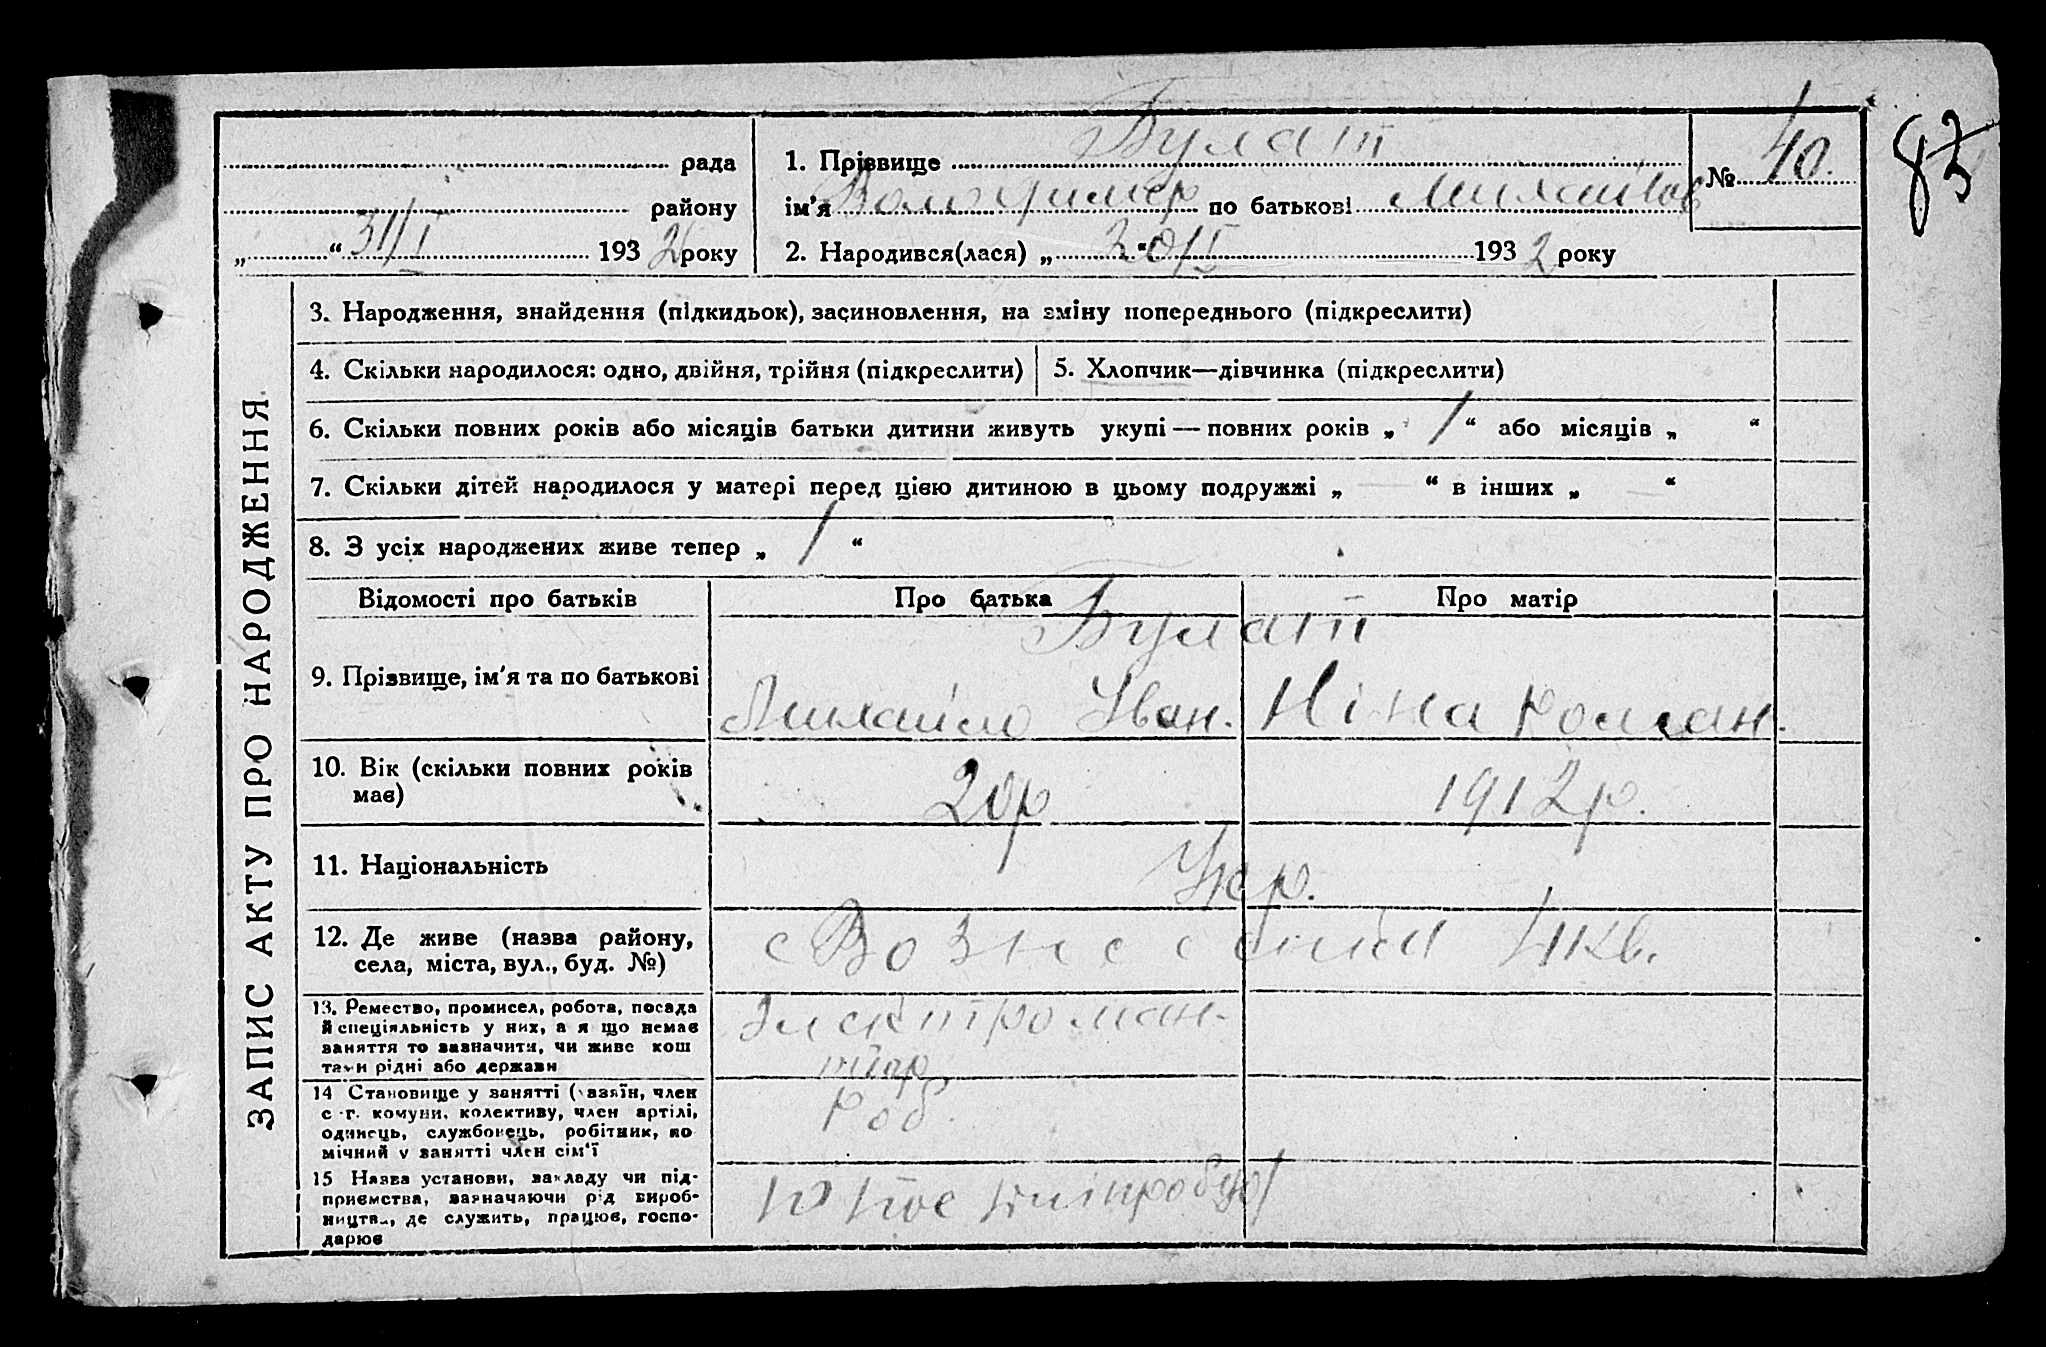 ЗАПИС АКТУ ПРО НАРОДЖЕННЯ
рада
району
„ “ 31/I 1932 року
1. Прізвище Булат
ім’я Володимер по батькові Михайлов
2. Народився(лася) „ 20/I “ 1932 року
№ 40.
83
3. Народження, знайдення (підкидьок), засиновлення, на зміну попереднього (підкреслити)
4. Скільки народилося: одно, двійня, трійня (підкреслити)
5. Хлопчик—дівчинка (підкреслити)
6. Скільки повних років або місяців батьки дитини живуть укупі — повних років „ 1 “ або місяців „ “
7. Скільки дітей народилося у матері перед цією дитиною в цьому подружжі „ — “ в інших „ — “
8. З усіх народжених живе тепер „ 1 “
Відомості про батьків
Про батька
Про матір
9. Прізвище, ім’я та по батькові
Булат
Михайло Іван.
Ніна Роман.
10. Вік (скільки повних років
має)
20р
1912р.
11. Національність
Укр.
12. Де живе (назва району,
села, міста, вул., буд. №)
с Вознесенка 4 кв.
13. Ремество, промисел, робота, посада
й спеціяльність у них, а я що немає
заняття то зазначити, чи живе кош
тами рідні або держави
Электроман-
тйор
14 Становище у занятті (хазяїн, член
с-г. комуни, колективу, член артілі,
одинець, службовець, робітник, по
мічний у занятті член сім’ї
Роб.
15 Назва установи, закладу чи під-
приємства, зазначаючи рід вироб-
ництва, де служить, працює, госпо-
дарює